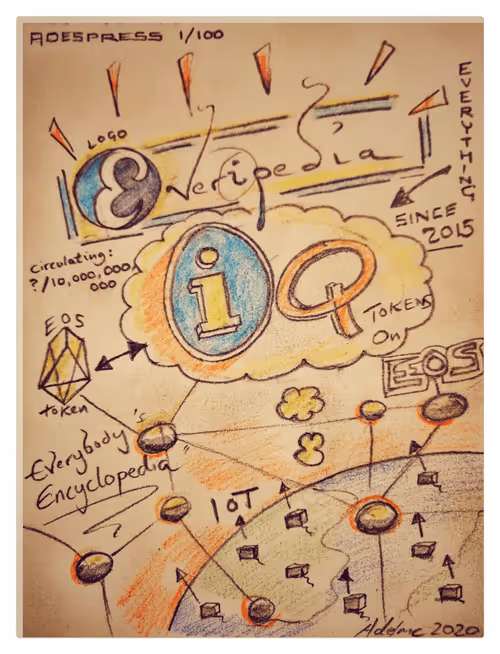 ADESPRESS 1/100
EVERYTHING
LOGO
Everipedia
SINCE
2015
Circulating:
?/10,000,000
000
iQ
TOKENS
On
EOS
EOS
token
Everybody's
Encyclopedia
IoT
2020